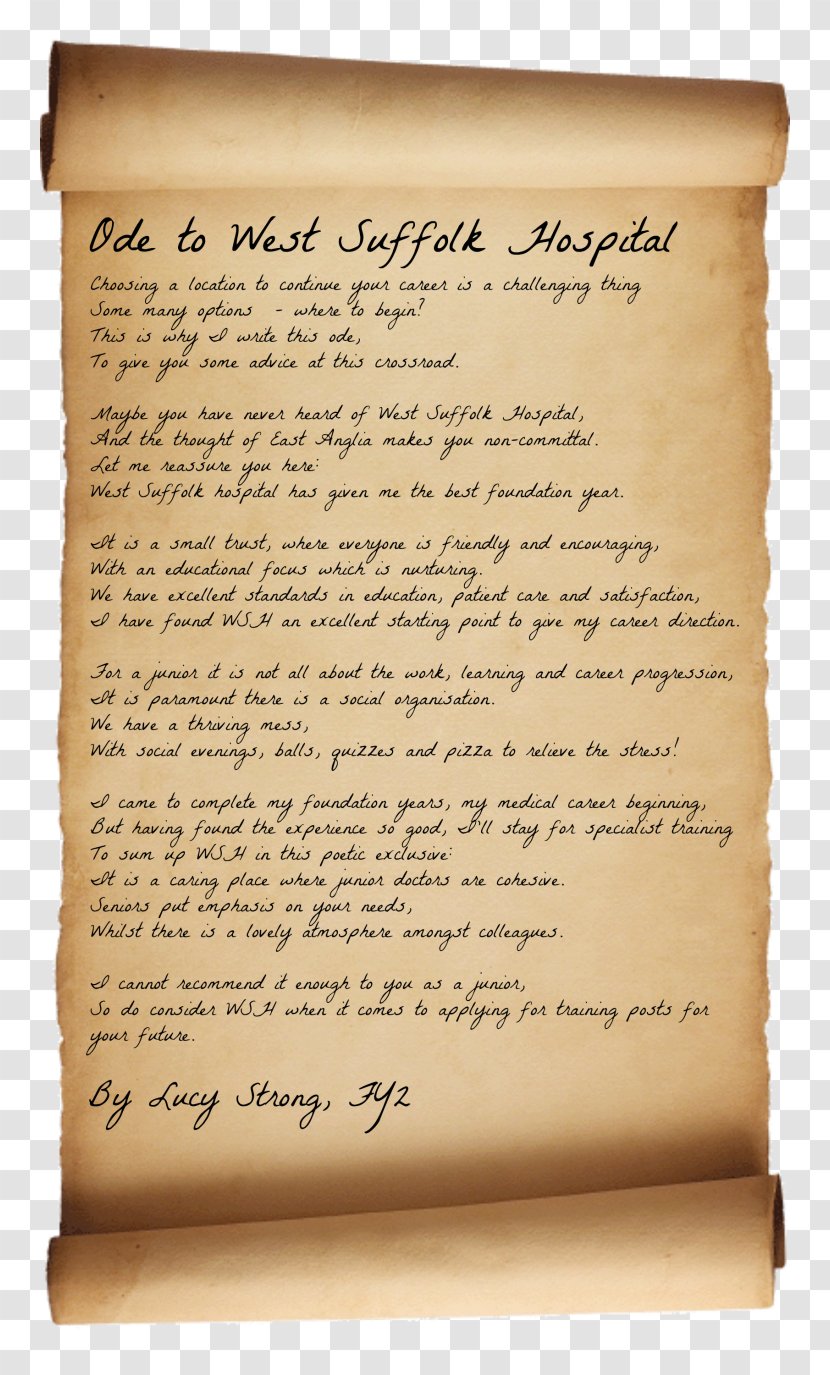 Ode to West Suffolk Hospital
Choosing a location to continue your career is a challenging thing
Some many options - where to begin?
This is why I write this ode,
To give you some advice at this crossroad.
Maybe you have never heard of West Suffolk Hospital,
And the thought of East Anglia makes you non-committal.
Let me reassure you here:
West Suffolk hospital has given me the best foundation year.
It is a small trust, where everyone is friendly and encouraging,
With an educational focus which is nurturing.
We have excellent standards in education, patient care and satisfaction,
I have found WSH an excellent starting point to give my career direction.
For a junior it is not all about the work, learning and career progression,
It is paramount there is a social organisation.
We have a thriving mess,
With social evenings, balls, quizzes and pizza to relieve the stress!
I came to complete my foundation years, my medical career beginning,
But having found the experience so good, I'll stay for specialist training
To sum up WSH in this poetic exclusive:
It is a caring place where junior doctors are cohesive.
Seniors put emphasis on your needs,
Whilst there is a lovely atmosphere amongst colleagues.
I cannot recommend it enough to you as a junior,
So do consider WSH when it comes to applying for training posts for
your future.
By Lucy Strong, FY2